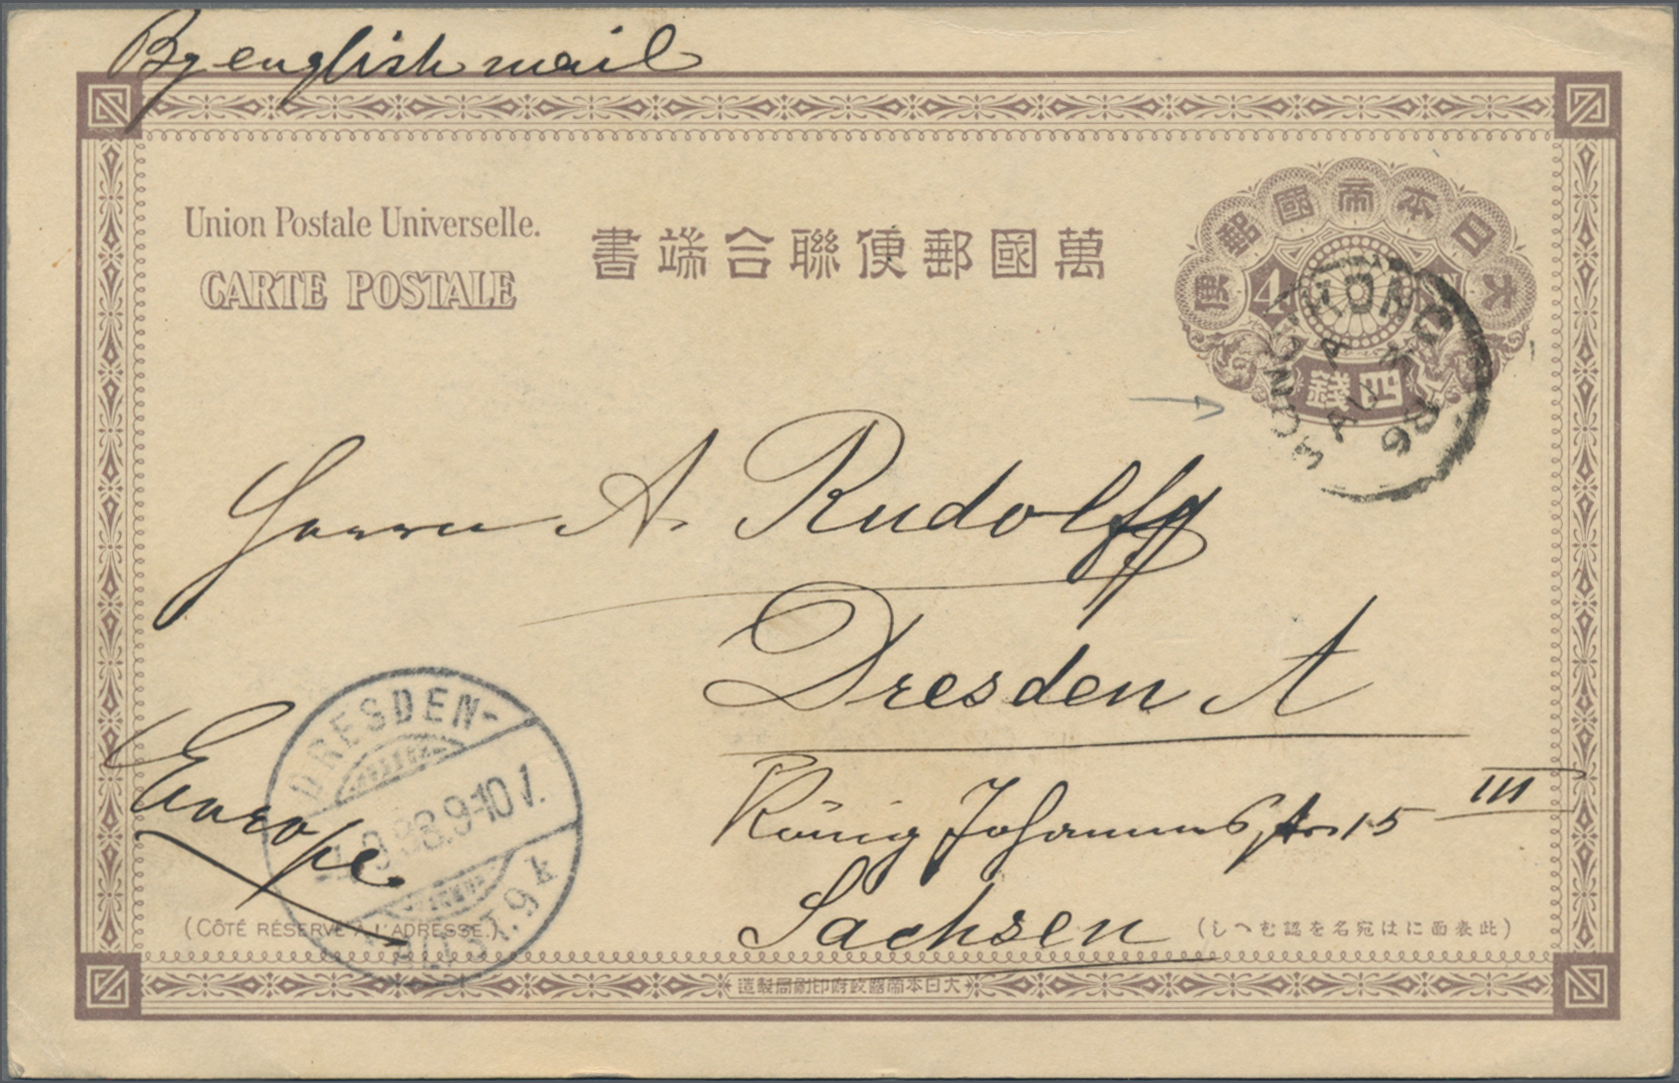 By english mail
Union Postale Universelle.
CARTE POSTALE
書端合聯便郵國萬
便郵國帝本日大
4
錢四
HONG KONG
A
AU
98
Herrn A. Rudolff
Dresden A
König Johannstr 15 III
Sachsen
Europe
DRESDEN-
9.98.9-10V.
ALTST. 9 k
(CÔTÉ RÉSERVÉ À L'ADRESSE.)
(しへむ認を名宛はに面表此)
造製局刷印府政國帝本日大